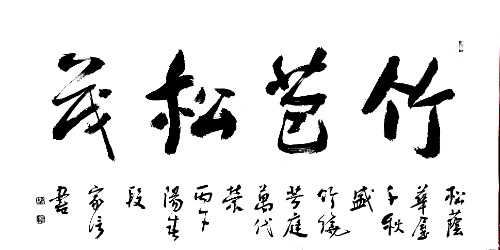 竹苞松茂
松蔭
華屋
千秋
盛
竹繞
庭
萬代
榮
丙午
陽春
段
家
書